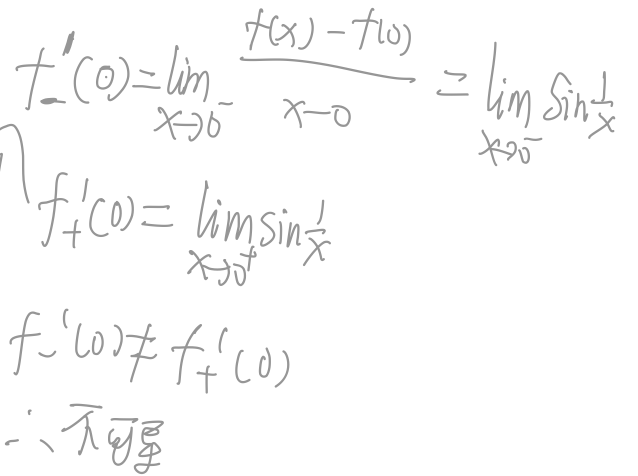 f₋′(0) = lim_{x→0⁻} (f(x) − f(0))/(x − 0) = lim_{x→0⁻} sin 1/x
f₊′(0) = lim_{x→0⁺} sin 1/x
f₋′(0) ≠ f₊′(0)
∴ 不可导